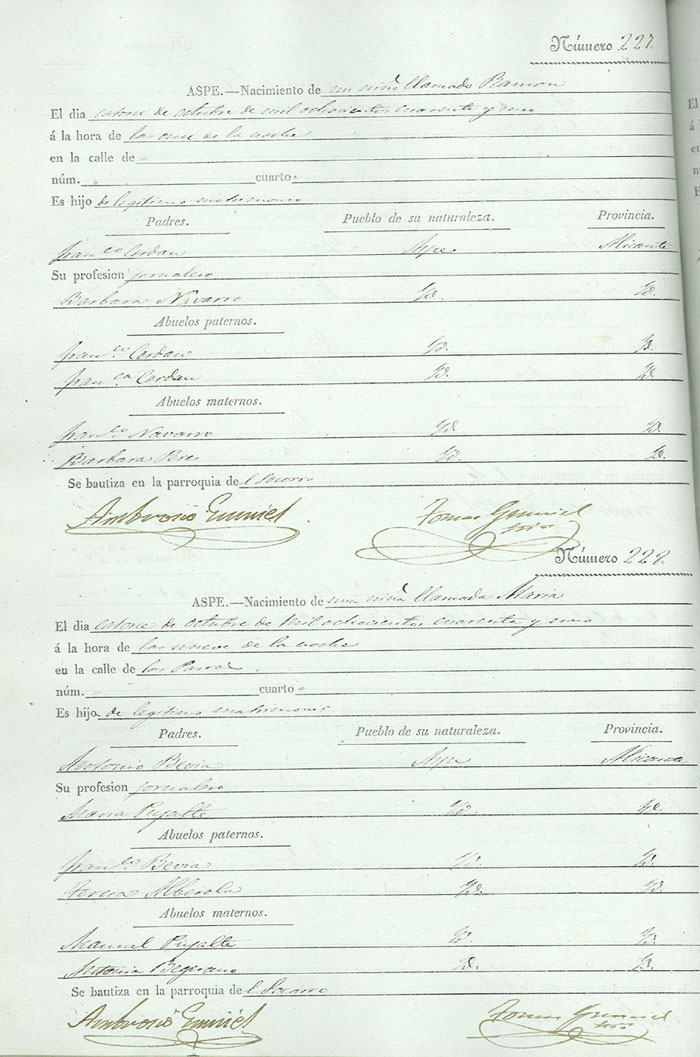 Número 227.
ASPE.—Nacimiento de un niño llamado Ramon
El dia catorce de octubre de mil ochocientos cuarenta y uno
á la hora de las once de la noche
en la calle de
núm. cuarto
Es hijo de legitimo matrimonio
Padres. Pueblo de su naturaleza. Provincia.
Fran.co Cerdan Aspe Alicante
Su profesion jornalero
Barbara Navarro Yd. Yd.
Abuelos paternos.
Fran.co Cerdan Yd. Yd.
Fran.ca Cerdan Yd. Yd.
Abuelos maternos.
Fran.co Navarro Yd. Yd.
Barbara Yd. Yd.
Se bautiza en la parroquia del Socorro
Ambrosio Tomas
Número 228.
ASPE.—Nacimiento de una niña llamada Maria
El dia catorce de octubre de mil ochocientos cuarenta y uno
á la hora de las nueve de la noche
en la calle de las
núm. cuarto
Es hijo de legitimo matrimonio
Padres. Pueblo de su naturaleza. Provincia.
Antonio Bevia Aspe Alicante
Su profesion jornalero
Maria Pujalte Yd. Yd.
Abuelos paternos.
Fran.co Bevia Yd. Yd.
Teresa Alberola Yd. Yd.
Abuelos maternos.
Manuel Pujalte Yd. Yd.
Antonia Yd. Yd.
Se bautiza en la parroquia del Socorro
Ambrosio Tomas